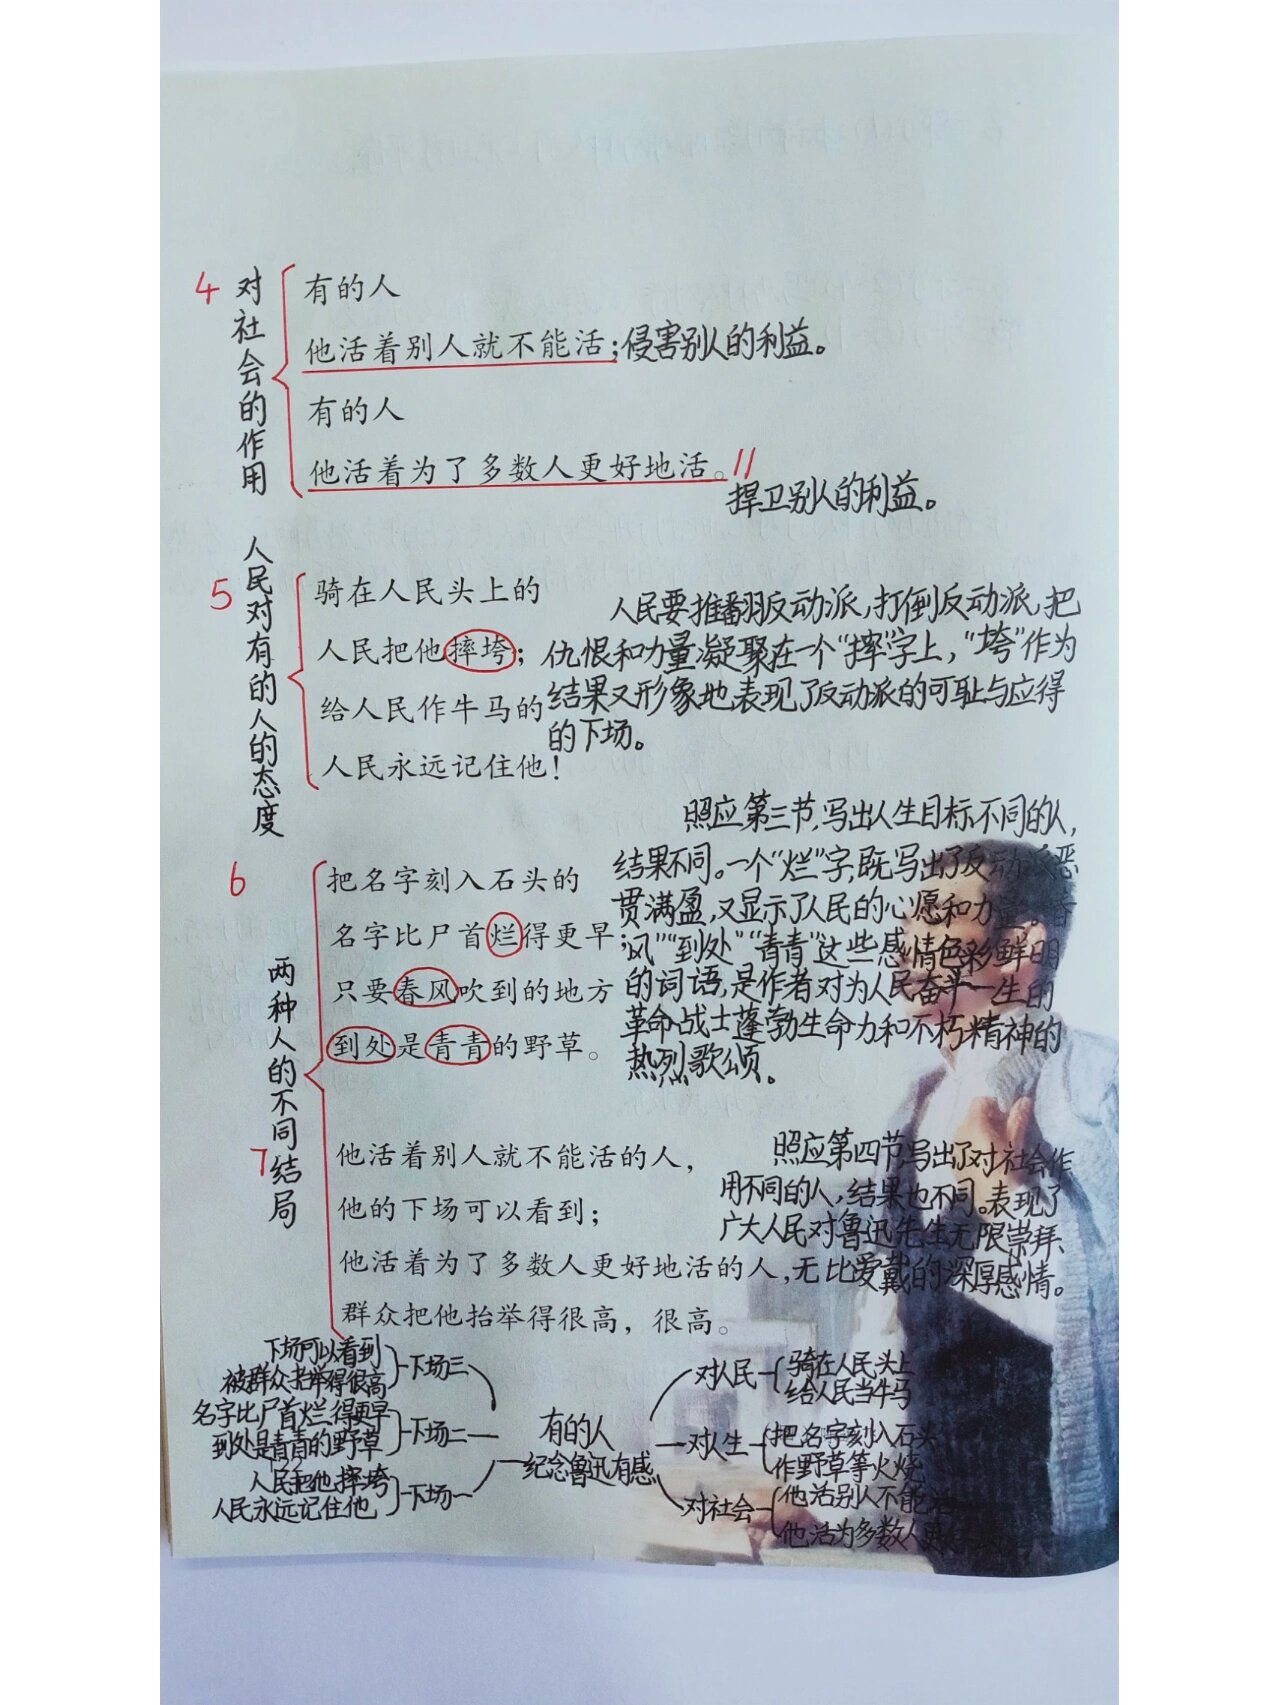 4
对社会的作用
有的人
他活着别人就不能活；侵害别人的利益。
有的人
他活着为了多数人更好地活。
捍卫别人的利益。
5
人民对有的人的态度
骑在人民头上的
人民把他摔垮；
给人民作牛马的
人民永远记住他！
人民要推翻反动派，打倒反动派，把
仇恨和力量凝聚在一个“摔”字上，“垮”作为
结果又形象地表现了反动派的可耻与应得
的下场。
6
两种人的不同结局
把名字刻入石头的
名字比尸首烂得更早；
只要春风吹到的地方
到处是青青的野草。
照应第三节，写出人生目标不同的人，
结果不同。一个“烂”字，既写出了反动派恶
贯满盈，又显示了人民的心愿和力量。“春
风”“到处”“青青”这些感情色彩鲜明
的词语，是作者对为人民奋斗一生的
革命战士蓬勃生命力和不朽精神的
热烈歌颂。
7
他活着别人就不能活的人，
他的下场可以看到；
他活着为了多数人更好地活的人，
群众把他抬举得很高，很高。
照应第四节，写出了对社会作
用不同的人，结果也不同。表现了
广大人民对鲁迅先生无限崇拜、
无比爱戴的深厚感情。
下场可以看到
被群众抬举得很高
下场三
名字比尸首烂得更早
到处是青青的野草
下场二
人民把他摔垮
人民永远记住他
下场一
22
有的人
纪念鲁迅有感
对人民
骑在人民头上
给人民当牛马
对人生
把名字刻入石头
作野草等火烧
对社会
他活别人不能
他活为多数人更